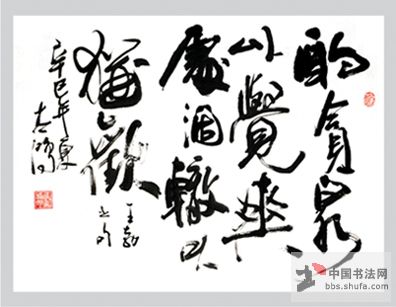 酌貪泉
以覺爽
處涸轍以
猶歡
王勃
之句
辛巳年
中国书法网
bbs.shufa.com